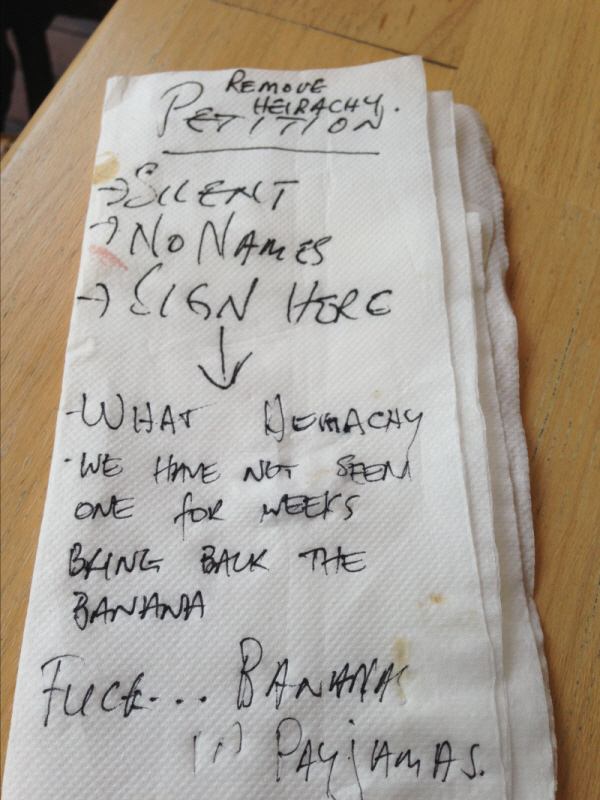 REMOVE
HEIRACHY.
PETITION
→ SILENT
→ NO NAMES
→ SIGN HERE
↓
- WHAT HEIRACHY
- WE HAVE NOT SEEM
ONE FOR WEEKS
BRING BACK THE
BANANA
FUCK... BANANA
PAYJAMAS.